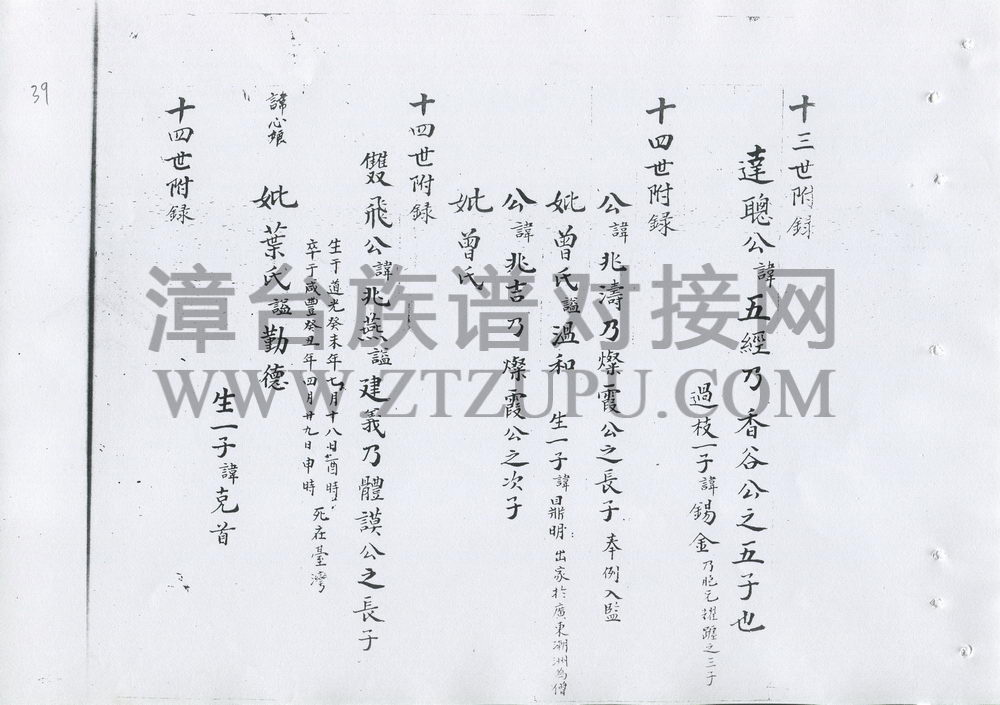 十三世附録
達聰公諱五經乃香谷公之五子也
過枝一子諱錫金乃胞兄擢躍之三子
十四世附録
公諱兆濤乃燦霞公之長子奉例入監
妣曾氏謚溫和 生一子諱鼎明出家於廣東潮洲為僧
公諱兆吉乃燦霞公之次子
妣曾氏
十四世附録
雙飛公諱兆燕謚建義乃體謨公之長子
生于道光癸未年七月十八日酉時
卒于咸豐癸丑年四月廿九日申時 死在臺灣
諱心娘 妣葉氏謚勤德
生一子諱克首
十四世附録
39
漳台族谱对接网
WWW.ZTZUPU.COM